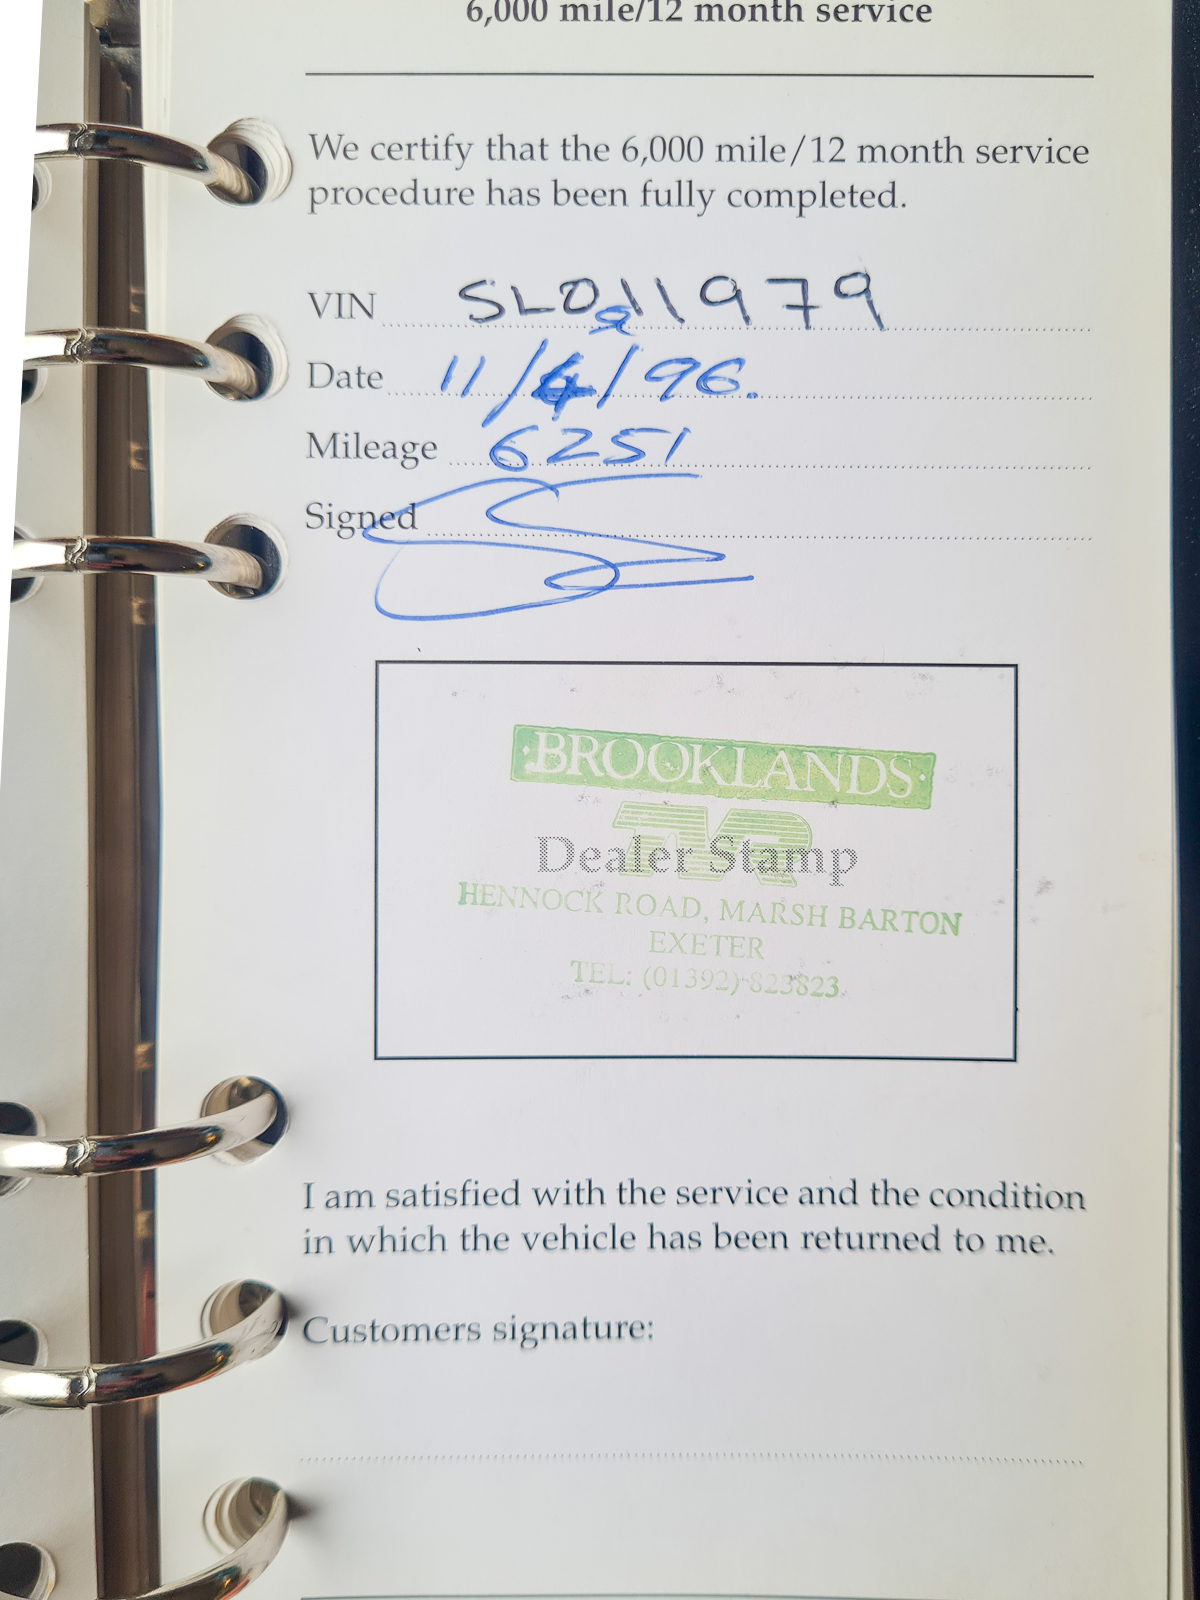 6,000 mile/12 month service
We certify that the 6,000 mile/12 month service
procedure has been fully completed.
VIN SLO 11979
Date 11/4/96.
Mileage 6251
Signed
·BROOKLANDS·
TVR
Dealer Stamp
HENNOCK ROAD, MARSH BARTON
EXETER
TEL: (01392) 823823
I am satisfied with the service and the condition
in which the vehicle has been returned to me.
Customers signature: